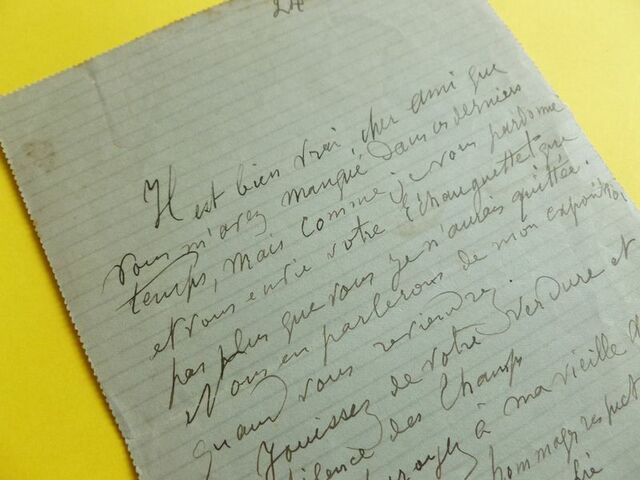 24
Il est bien vrai, cher ami que
vous m'avez manqué dans ces derniers
temps, mais comme je vous pardonne
et vous envie votre Echauguette que
pas plus que vous je n'aurais quittée.
Nous en parlerons de mon exposition
quand vous reviendrez.
Jouissez de votre verdure et
silence des Champs
à ma vieille
hommages respect